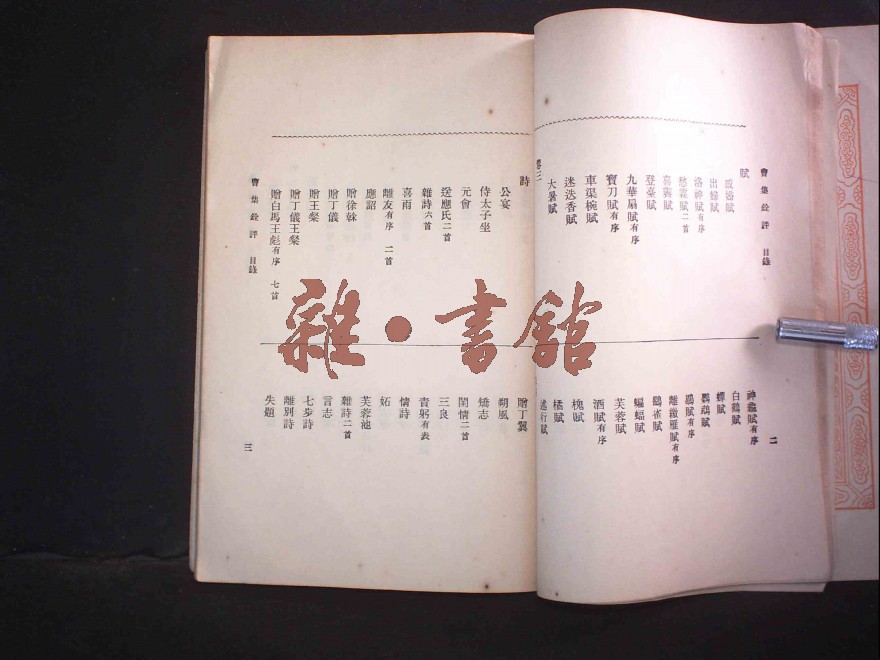 曹集銓評 目錄 二
賦
感婚賦
出婦賦
洛神賦有序
愁霖賦二首
喜霽賦
登臺賦
九華扇賦有序
寶刀賦有序
車渠椀賦
迷迭香賦
大暑賦
神龜賦有序
白鶴賦
蟬賦
鸚鵡賦
鶡賦有序
離繳雁賦有序
鷂雀賦
蝙蝠賦
芙蓉賦
酒賦有序
槐賦
橘賦
述行賦
卷三
詩
公宴
侍太子坐
元會
送應氏二首
雜詩六首
喜雨
離友有序 二首
應詔
贈徐榦
贈丁儀
贈王粲
贈丁儀王粲
贈白馬王彪有序 七首
贈丁翼
朔風
矯志
閨情二首
三良
責躬有表
情詩
妬
芙蓉池
雜詩二首
言志
七步詩
離別詩
失題
曹集銓評 目錄 三
雜·書館